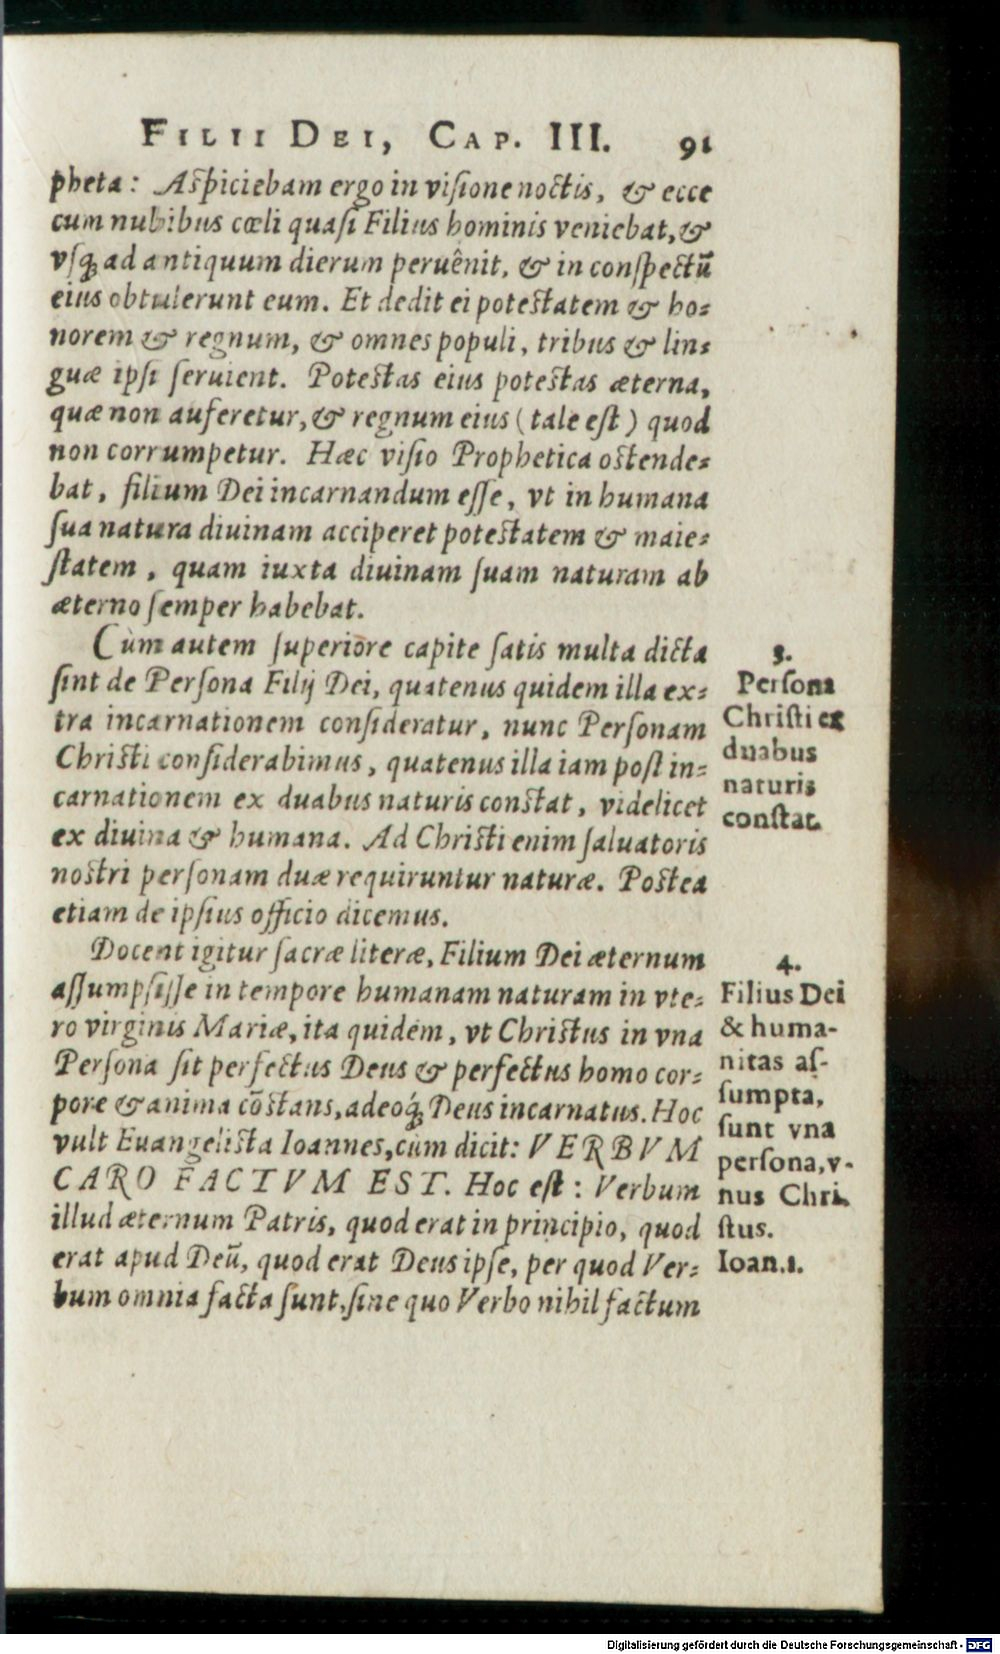 FILII DEI, CAP. III. 91
pheta: Aſpiciebam ergo in viſione noctis, & ecce
cum nubibus cœli quaſi Filius hominis veniebat, &
vſq́ꝫ ad antiquum dierum peruênit, & in conſpectũ
eius obtulerunt eum. Et dedit ei poteſtatem & ho-
norem & regnum, & omnes populi, tribus & lin-
guæ ipſi ſeruient. Poteſtas eius poteſtas æterna,
quæ non auferetur, & regnum eius (tale eſt) quod
non corrumpetur. Hæc viſio Prophetica oſtende-
bat, filium Dei incarnandum eſſe, vt in humana
ſua natura diuinam acciperet poteſtatem & maie-
ſtatem, quam iuxta diuinam ſuam naturam ab
æterno ſemper habebat.
Cùm autem ſuperiore capite ſatis multa dicta
ſint de Perſona Filij Dei, quatenus quidem illa ex-
tra incarnationem conſideratur, nunc Perſonam
Chriſti conſiderabimus, quatenus illa iam poſt in-
carnationem ex duabus naturis conſtat, videlicet
ex diuina & humana. Ad Chriſti enim ſaluatoris
noſtri perſonam duæ requiruntur naturæ. Poſtea
etiam de ipſius officio dicemus.
3.
Perſona
Chriſti ex
duabus
naturis
conſtat.
Docent igitur ſacræ literæ, Filium Dei æternum
aſſumpſiſſe in tempore humanam naturam in vte-
ro virginis Mariæ, ita quidem, vt Chriſtus in vna
Perſona ſit perfectus Deus & perfectus homo cor-
pore & anima cõſtans, adeoq́ꝫ Deus incarnatus. Hoc
vult Euangeliſta Ioannes, cùm dicit: VERBVM
CARO FACTVM EST. Hoc eſt: Verbum
illud æternum Patris, quod erat in principio, quod
erat apud Deũ, quod erat Deus ipſe, per quod Ver-
bum omnia facta ſunt, ſine quo Verbo nihil factum
4.
Filius Dei
& huma-
nitas aſ-
ſumpta,
ſunt vna
perſona, v-
nus Chri-
ſtus.
Ioan. 1.
Digitalisierung gefördert durch die Deutsche Forschungsgemeinschaft - DFG